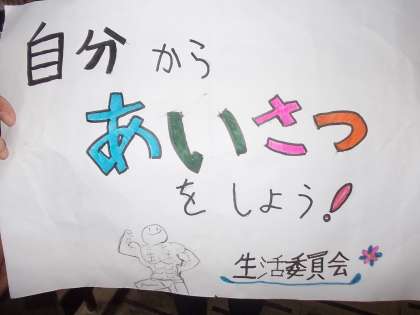 自分から
あいさつ
をしよう!
生活委員会